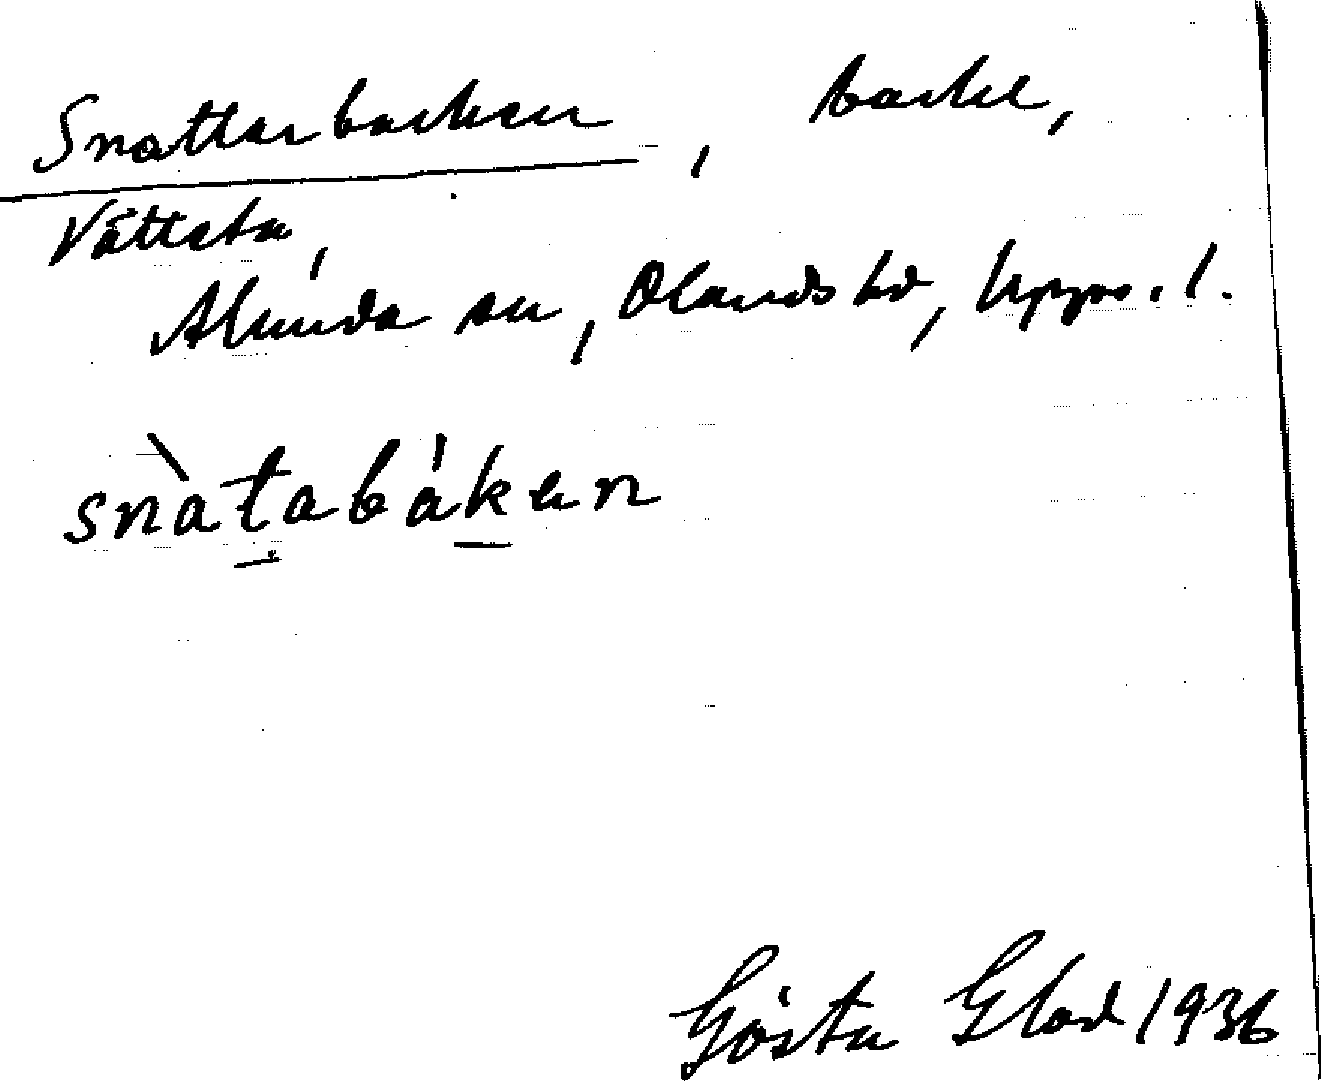 Snattarbacken, backe,
Vättsta,
Alunda sn, Olands hd, Upps. l.
snàtabákɐn
Gösta Glad 1936